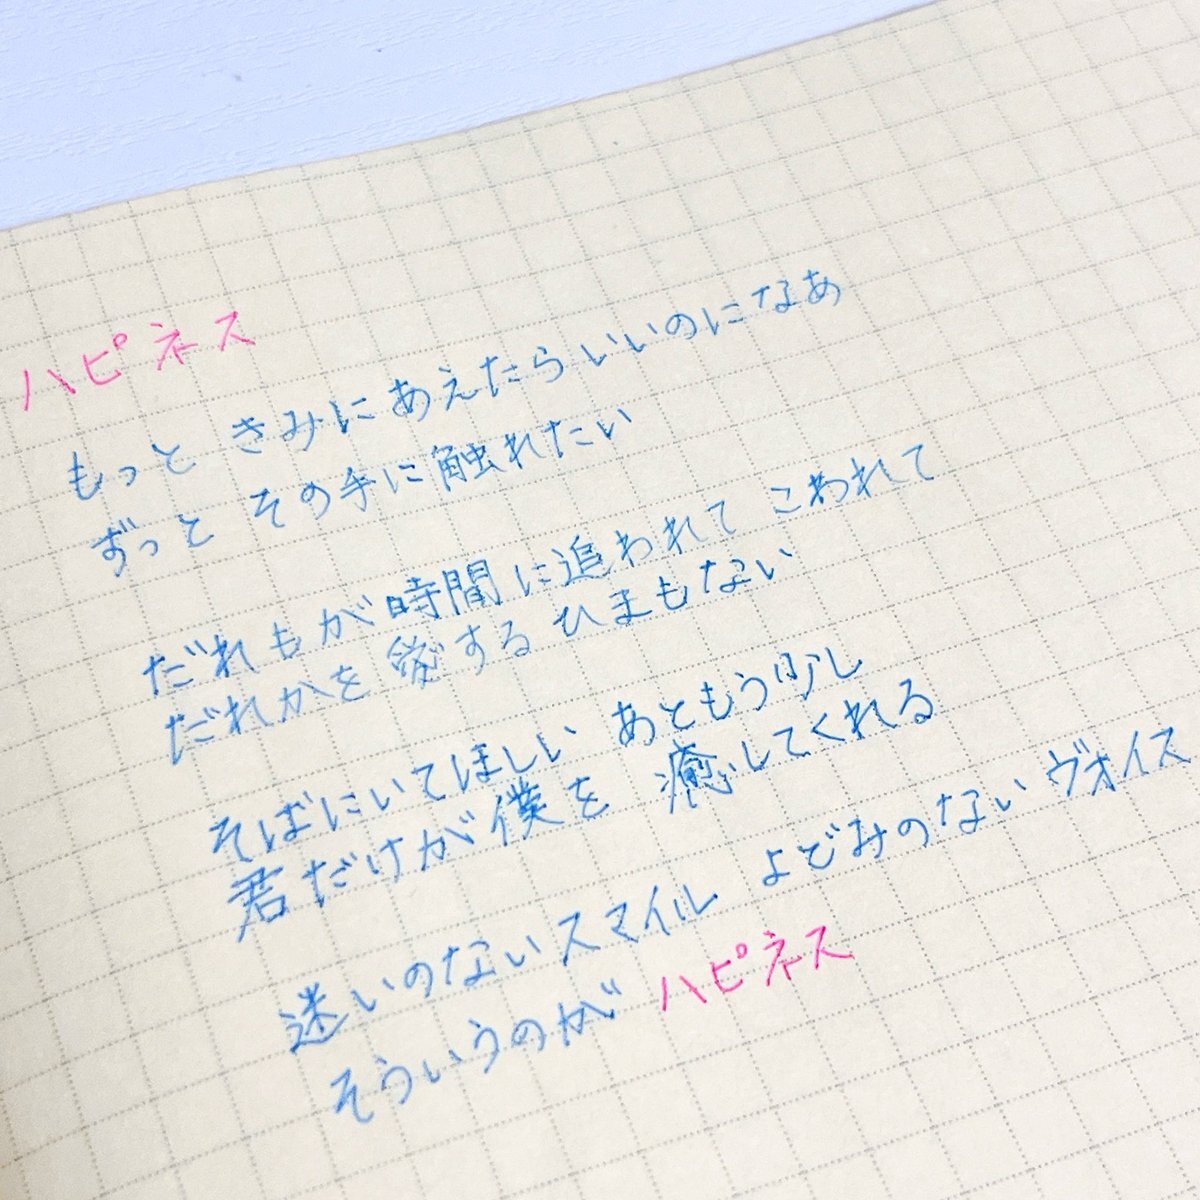 ハピネス
もっと きみにあえたらいいのになあ
ずっと その手に触れたい
だれもが時間に追われて こわれて
だれかを愛する ひまもない
そばにいてほしい あともう少し
君だけが僕を 癒してくれる
迷いのないスマイル よどみのないヴォイス
そういうのが ハピネス